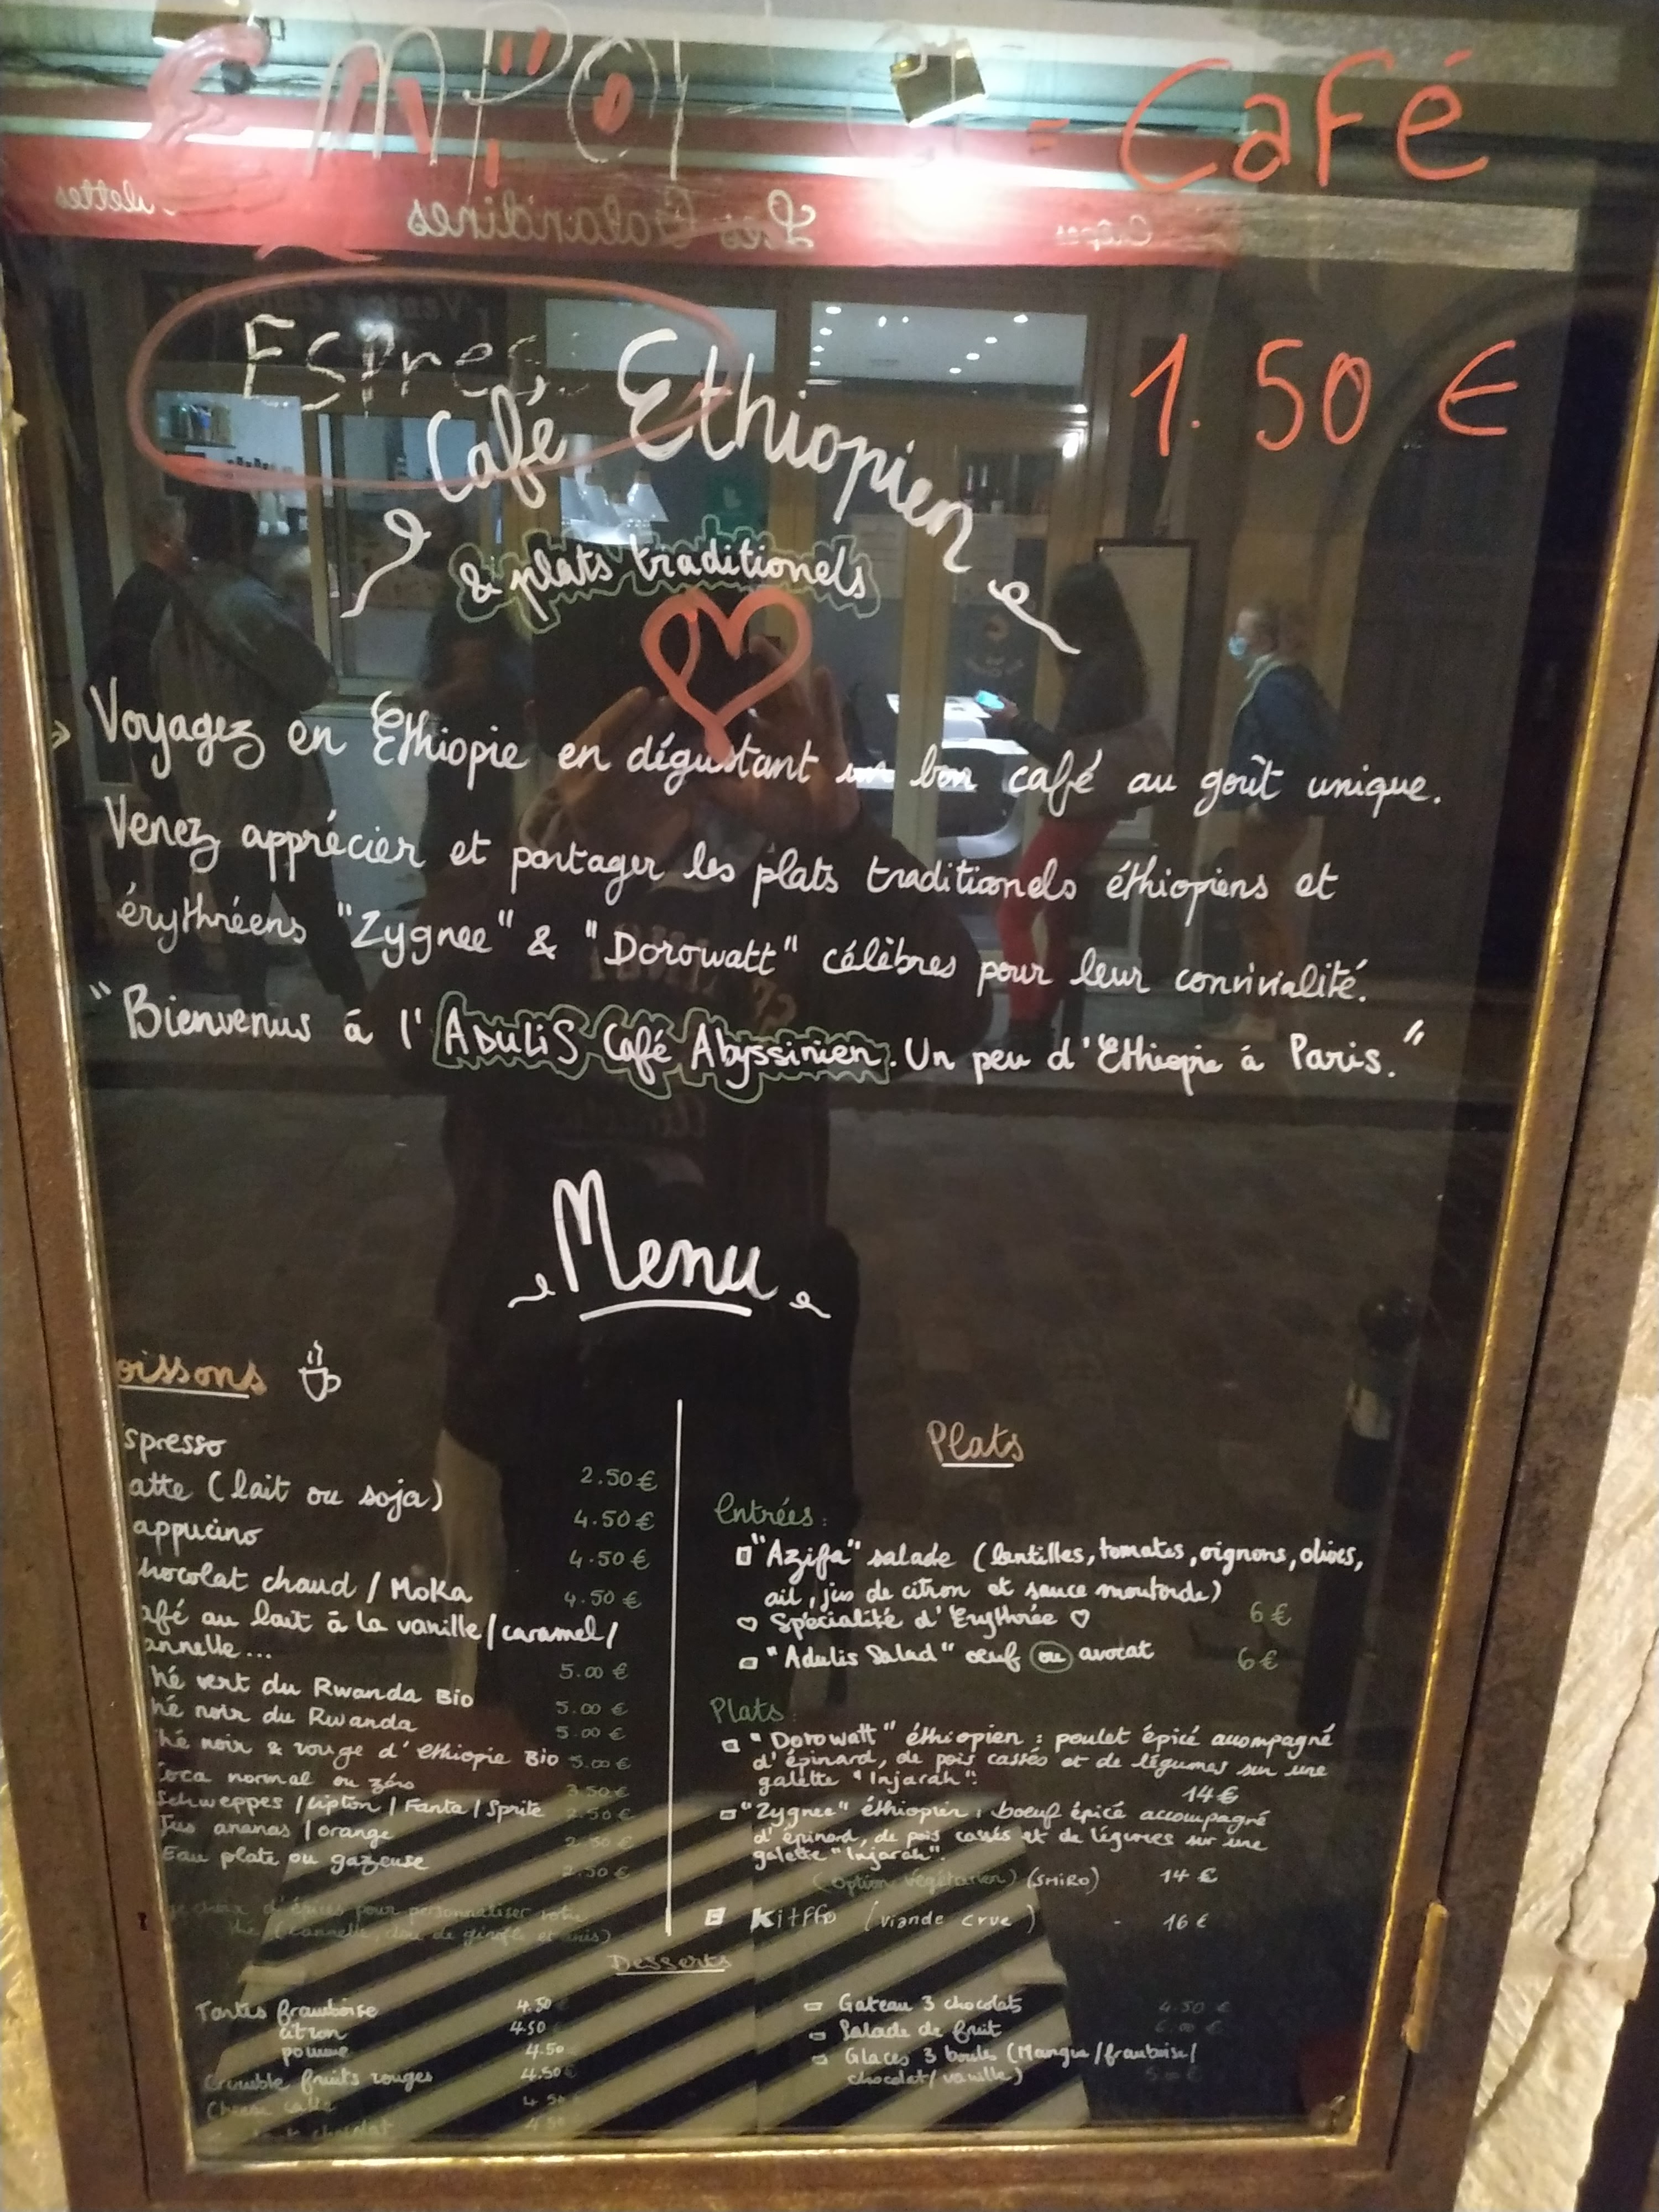 = Café
1.50 €
Café Ethiopien
& plats traditionels
Voyagez en Ethiopie en dégustant un bon café au goût unique.
Venez apprécier et partager les plats traditionels éthiopiens et
érythréens "Zygnee" & "Dorowatt" célèbres pour leur convivialité.
"Bienvenus à l'Adulis Café Abyssinien. Un peu d'Ethiopie à Paris."
Menu
oissons
spresso 2.50 €
atte (lait ou soja) 4.50 €
appucino 4.50 €
hocolat chaud / Moka 4.50 €
afé au lait à la vanille / caramel /
annelle... 5.00 €
hé vert du Rwanda Bio 5.00 €
hé noir du Rwanda 5.00 €
hé noir & rouge d'ethiopie Bio 5.00 €
Coca normal ou zéro 3.50 €
Schweppes / Lipton / Fanta / Sprite 2.50 €
Jus ananas / orange 2.50 €
Eau plate ou gazeuse 2.50 €
choix d'épices pour personnaliser votre
thé (cannelle, clou de girofle et anis)
Plats
Entrées :
"Azifa" salade (lentilles, tomates, oignons, olives,
ail, jus de citron et sauce moutarde)
♡ Spécialité d'Erythrée ♡ 6 €
"Adulis Salad" oeuf ou avocat 6 €
Plats :
"Dorowatt" éthiopien : poulet épicé accompagné
d'épinard, de pois cassés et de légumes sur une
galette "Injarah". 14 €
"Zygnee" éthiopien : boeuf épicé accompagné
d'épinard, de pois cassés et de légumes sur une
galette "Injarah".
(Option végétarien) (SHIRO) 14 €
Kitffo (viande crue) - 16 €
Desserts
Tartes framboise 4.50
citron 4.50
pomme 4.50
Crumble fruits rouges 4.50 €
Cheese cake 4.50
chocolat 4.50
Gateau 3 chocolats 4.50 €
Salade de fruit
Glaces 3 boules (Mangue / framboise /
chocolat / vanille)